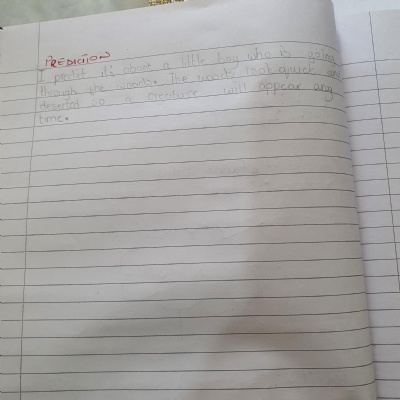 PREDICTION
I predict it's about a little boy who is going
through the woods. The woods look quiet and
deserted so a creature will appear any
time.